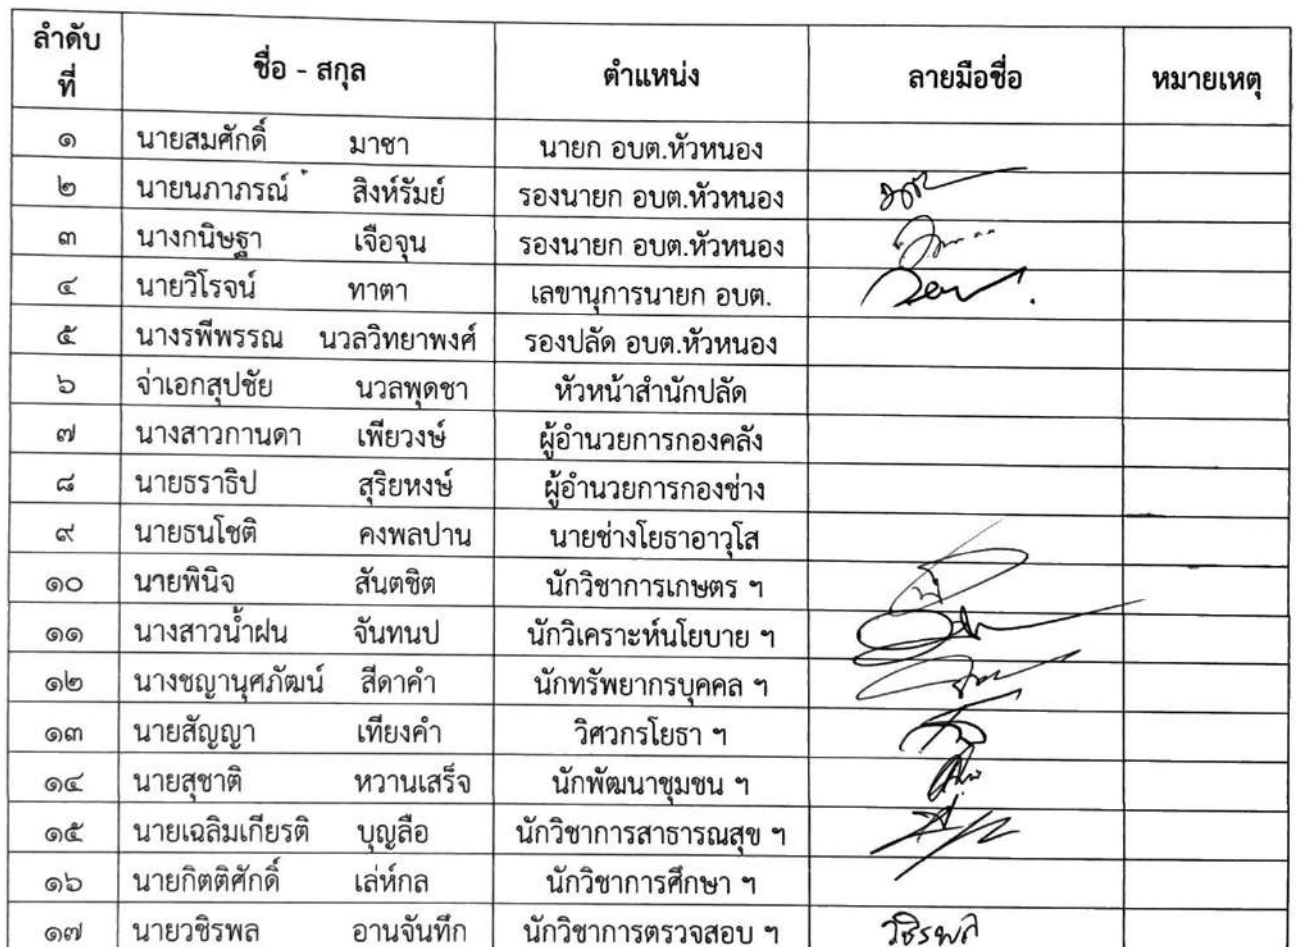 ลำดับที่ ชื่อ - สกุล ตำแหน่ง ลายมือชื่อ หมายเหตุ
๑ นายสมศักดิ์ มาชา นายก อบต.หัวหนอง
๒ นายนภาภรณ์ สิงห์รัมย์ รองนายก อบต.หัวหนอง
๓ นางกนิษฐา เจือจุน รองนายก อบต.หัวหนอง
๔ นายวิโรจน์ ทาตา เลขานุการนายก อบต.
๕ นางรพีพรรณ นวลวิทยาพงศ์ รองปลัด อบต.หัวหนอง
๖ จ่าเอกสุปชัย นวลพุดชา หัวหน้าสำนักปลัด
๗ นางสาวกานดา เพียวงษ์ ผู้อำนวยการกองคลัง
๘ นายธราธิป สุริยหงษ์ ผู้อำนวยการกองช่าง
๙ นายธนโชติ คงพลปาน นายช่างโยธาอาวุโส
๑๐ นายพินิจ สันตชิต นักวิชาการเกษตร ฯ
๑๑ นางสาวน้ำฝน จันทนป นักวิเคราะห์นโยบาย ฯ
๑๒ นางชญานุศภัฒน์ สีดาคำ นักทรัพยากรบุคคล ฯ
๑๓ นายสัญญา เทียงคำ วิศวกรโยธา ฯ
๑๔ นายสุชาติ หวานเสร็จ นักพัฒนาชุมชน ฯ
๑๕ นายเฉลิมเกียรติ บุญลือ นักวิชาการสาธารณสุข ฯ
๑๖ นายกิตติศักดิ์ เล่ห์กล นักวิชาการศึกษา ฯ
๑๗ นายวชิรพล อานจันทึก นักวิชาการตรวจสอบ ฯ วชิรพล